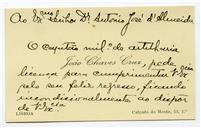 Ao Exmo Senhor Dr Antonio José d'Almeida
O capitão milº de artilharia
João Chaves Cruz, pede
licença para cumprimentar V. Ex
pelo seu feliz regresso, ficando
incondicionalmente ao dispor
de V. Ex
LISBOA Calçada do Monte, 53, 1.º